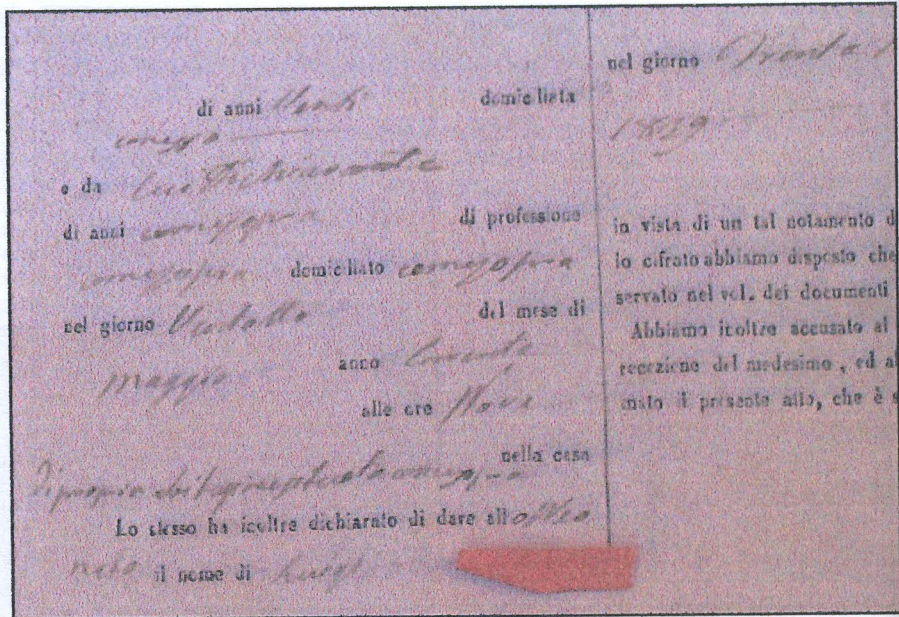 di anni Venti domiciliata
come sopra
e da
di anni come sopra di professione
come sopra domiciliato come sopra
nel giorno Ventotto del mese di
maggio anno Corrente
alle ore Nove
nella casa
di propria
Lo stesso ha inoltre dichiarato di dare all
nato il nome di Luigi
nel giorno Trenta
1839
in vista di un tal notamento d
lo cifrato abbiamo disposto che
servato nel vol. dei documenti
Abbiamo inoltre accusato al
recezione del medesimo, ed ab
mato il presente atto, che è s